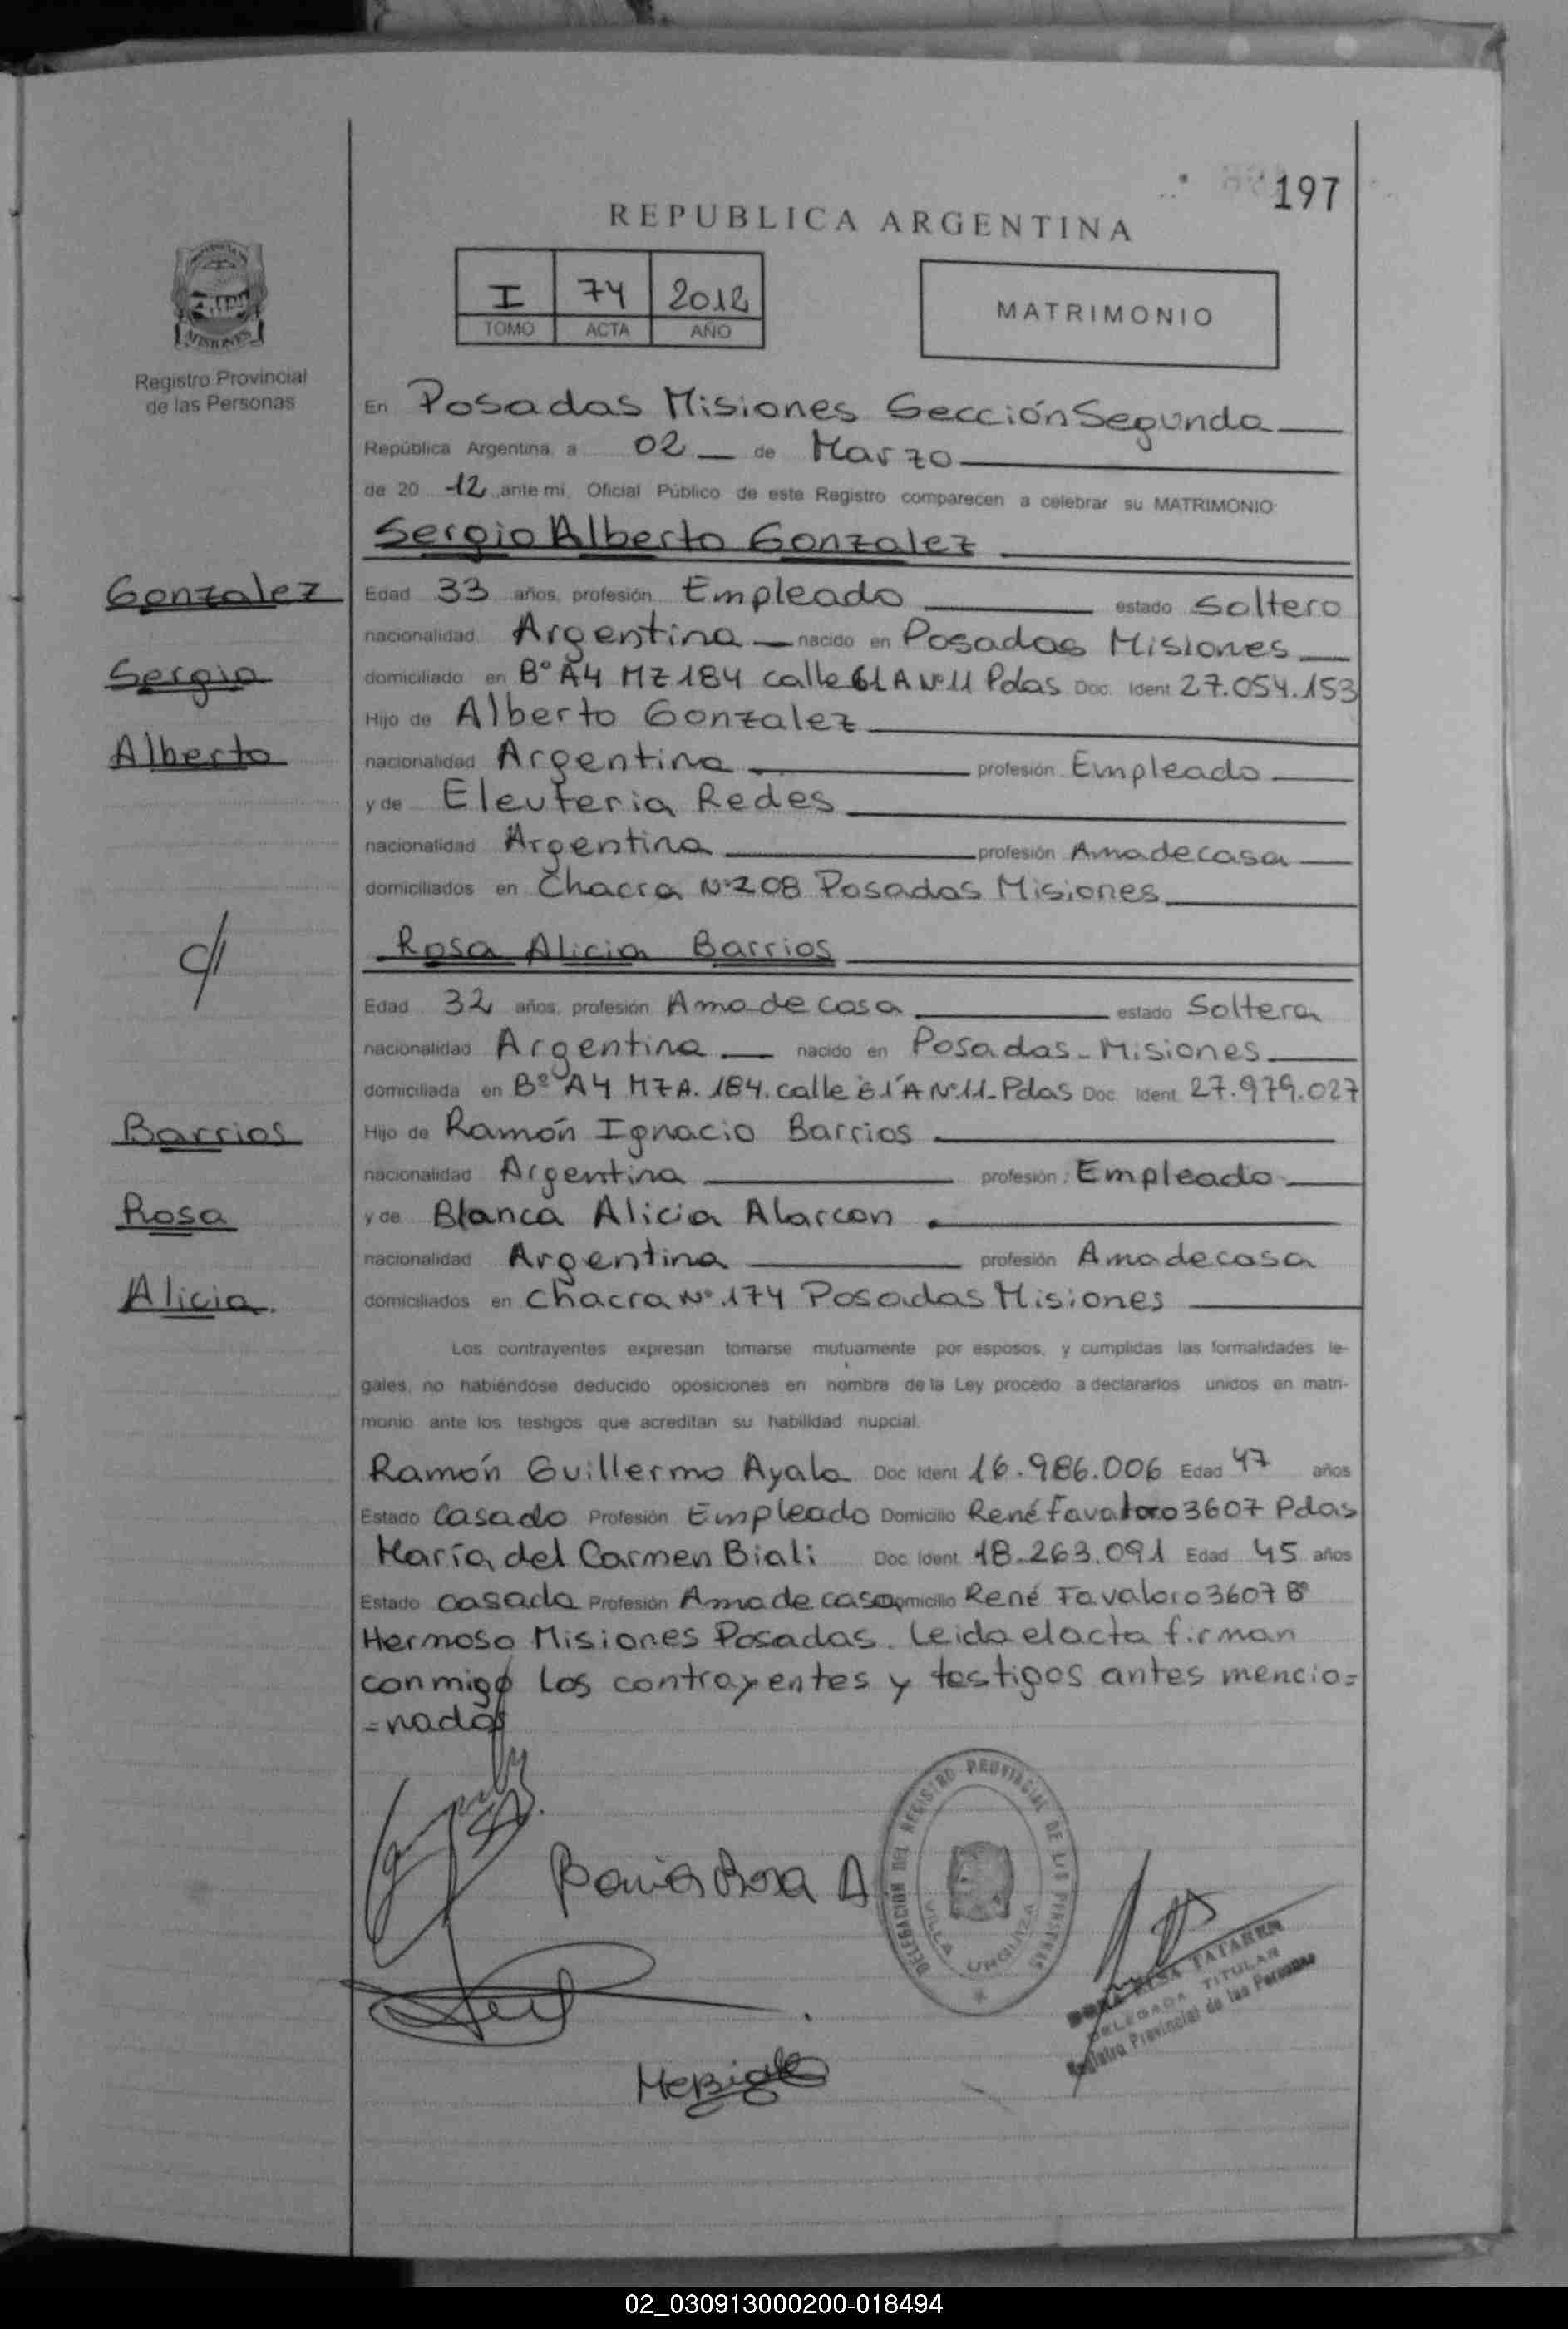 197
REPUBLICA ARGENTINA
I 74 2012
TOMO ACTA AÑO
MATRIMONIO
MISIONES
Registro Provincial
de las Personas
En Posadas Misiones Sección Segunda
República Argentina a 02 de Marzo
de 20 12 ante mi, Oficial Público de este Registro comparecen a celebrar su MATRIMONIO
Sergio Alberto Gonzalez
Gonzalez
Sergio
Alberto
Edad 33 años, profesión Empleado estado Soltero
nacionalidad Argentina nacido en Posadas Misiones
domiciliado en Bº A4 MZ 184 calle 61 A Nº 11 Pdas Doc. Ident 27.054.153
Hijo de Alberto Gonzalez
nacionalidad Argentina profesión Empleado
y de Eleuteria Redes
nacionalidad Argentina profesión Ama de casa
domiciliados en Chacra Nº 208 Posadas Misiones
c/
Rosa Alicia Barrios
Edad 32 años, profesión Ama de casa estado Soltera
nacionalidad Argentina nacido en Posadas - Misiones
domiciliada en Bº A4 MZA. 184. calle 61 A Nº 11 - Pdas Doc. Ident. 27.979.027
Barrios
Rosa
Alicia.
Hijo de Ramón Ignacio Barrios
nacionalidad Argentina profesión: Empleado
y de Blanca Alicia Alarcon
nacionalidad Argentina profesión Ama de casa
domiciliados en Chacra Nº 174 Posadas Misiones
Los contrayentes expresan tomarse mutuamente por esposos, y cumplidas las formalidades le-
gales, no habiéndose deducido oposiciones en nombre de la Ley procedo a declararlos unidos en matri-
monio ante los testigos que acreditan su habilidad nupcial.
Ramón Guillermo Ayala Doc Ident 16.986.006 Edad 47 años
Estado Casado Profesión Empleado Domicilio René Favaloro 3607 Pdas
María del Carmen Biali Doc. Ident. 18.263.091 Edad 45 años
Estado casada Profesión Ama de casa Domicilio René Favaloro 3607 Bº
Hermoso Misiones Posadas. Leida el acta firman
conmigo los contrayentes y testigos antes mencio=
=nados
Barrios Rosa A
DELEGACIÓN DEL REGISTRO PROVINCIAL DE LAS PERSONAS
VILLA URQUIZA
TATAREN
DELEGADA TITULAR
Registro Provincial de las Personas
02_030913000200-018494